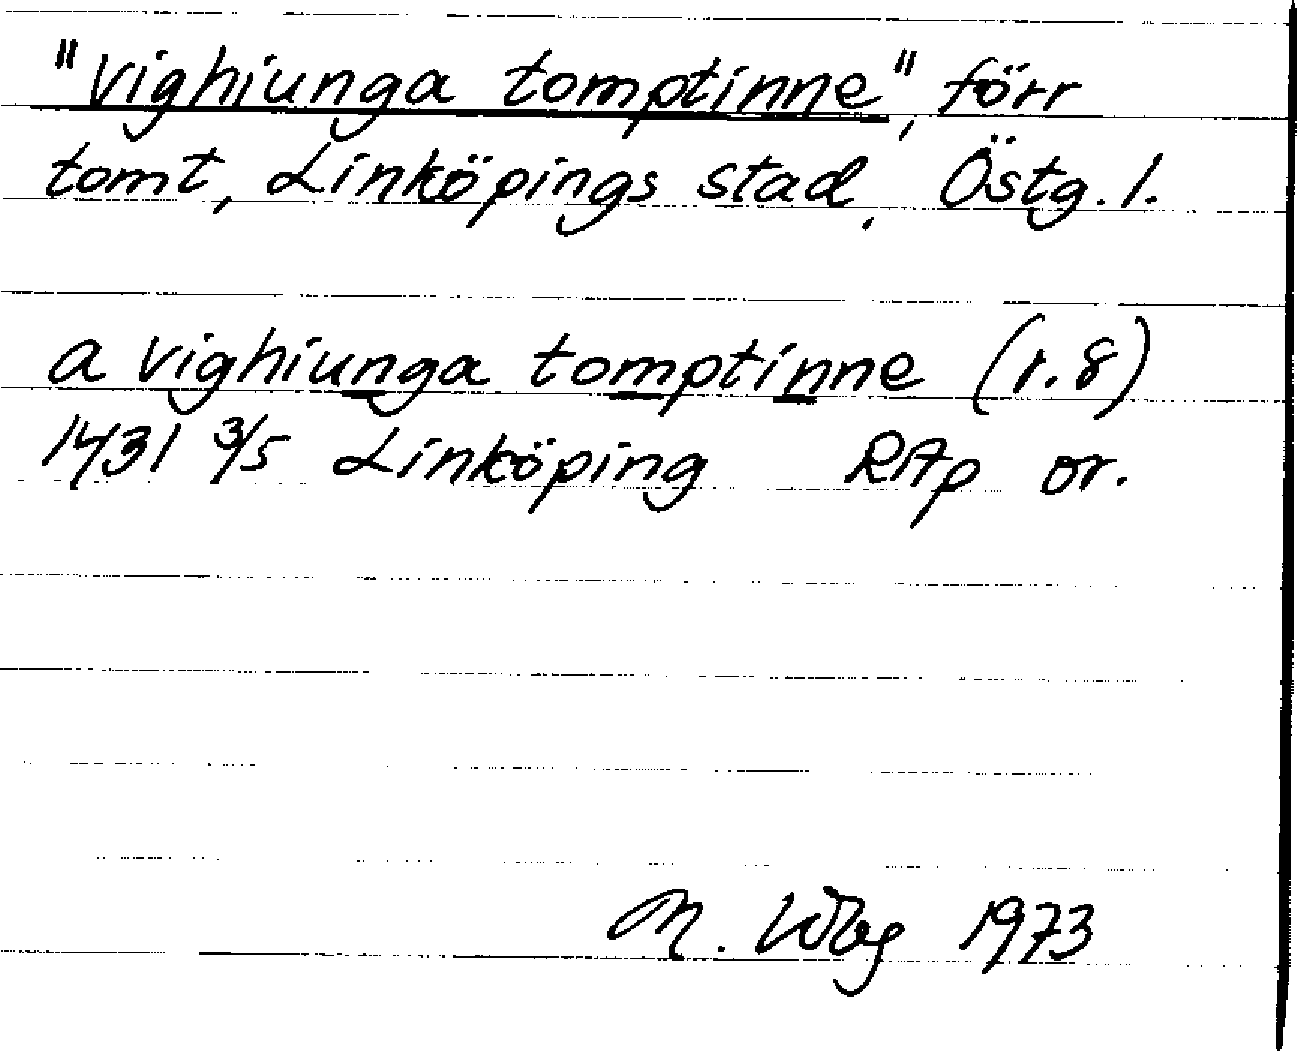 "vighiunga tomptinne", förr
tomt, Linköpings stad, Östg. l.
a vighiunga tomptinne (r. 8)
1431 3/5 Linköping RAp or.
M. Wbg 1973